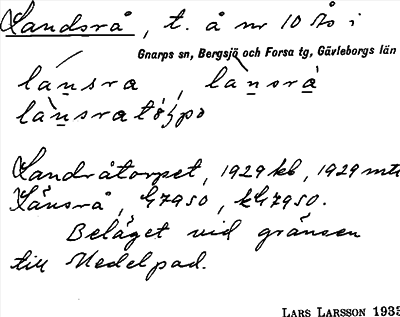 Landsrå, t. å nr 10 Ås i
Gnarps sn, Bergsjö och Forsa tg, Gävleborgs län
lansra, lansra
lansratorpo
Landråtorpet, 1929 kb, 1929 mtl
Länsrå, G7950, kG7950.
Beläget vid gränsen
till Medelpad.
LARS LARSSON 1933